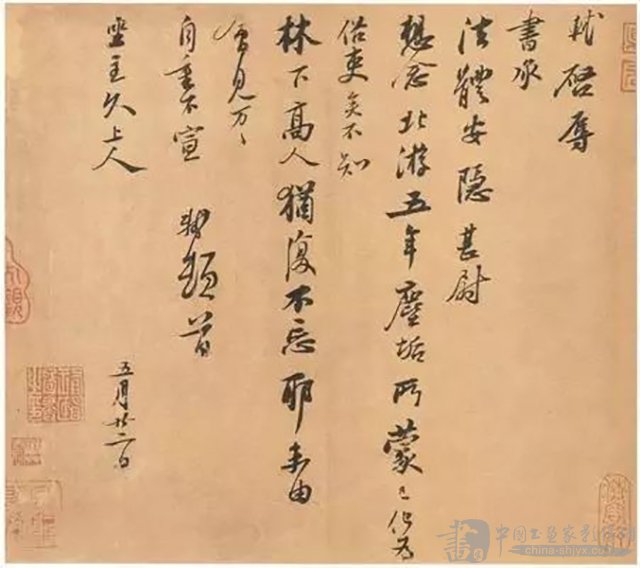 軾啓辱
書承
法體安隱甚尉
想念北游五年塵垢所蒙已化為
俗吏矣不知
林下高人猶復不忘耶未由
會見万〻
自重不宣 軾頓首
坐主久上人
五月廿二日
china-shjyx.com